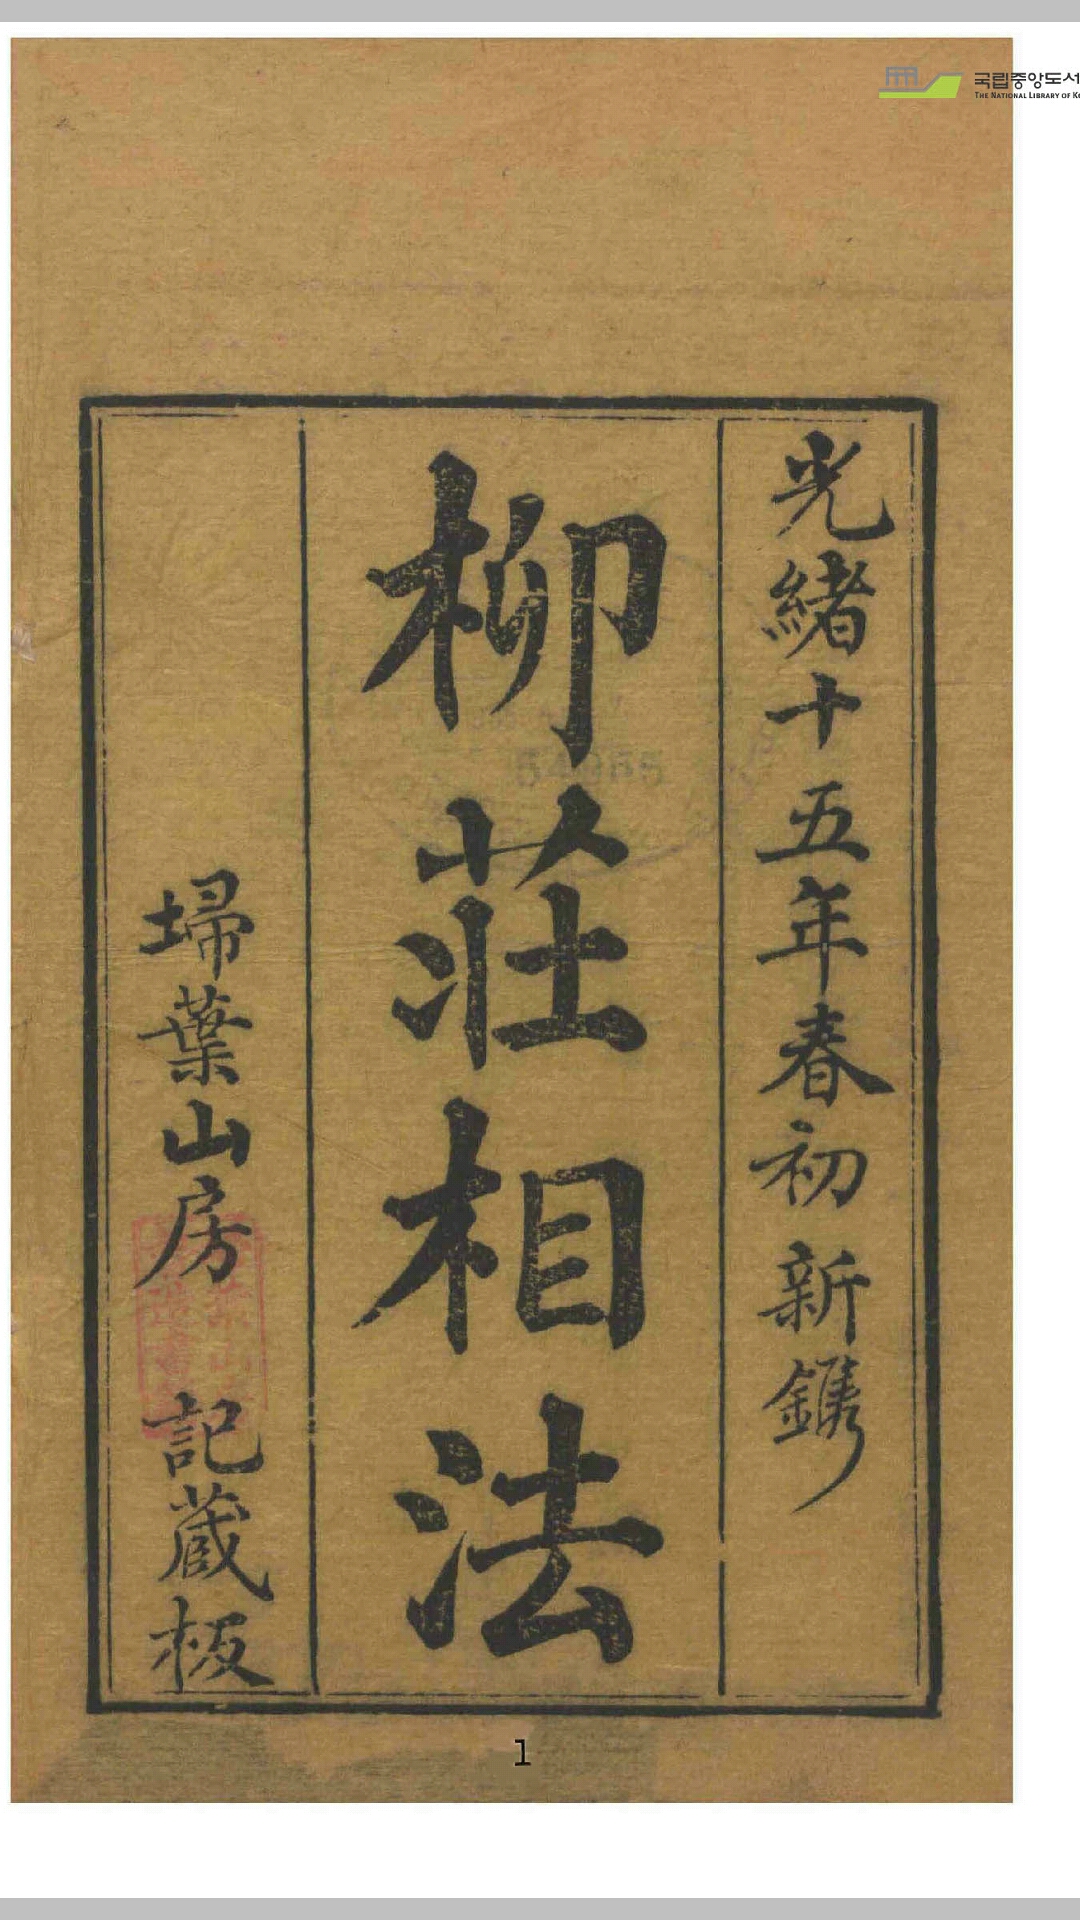 국립중앙도서
THE NATIONAL LIBRARY OF K
光緒十五年春初新鐫
柳莊相法
54965
埽葉山房 記藏板
1